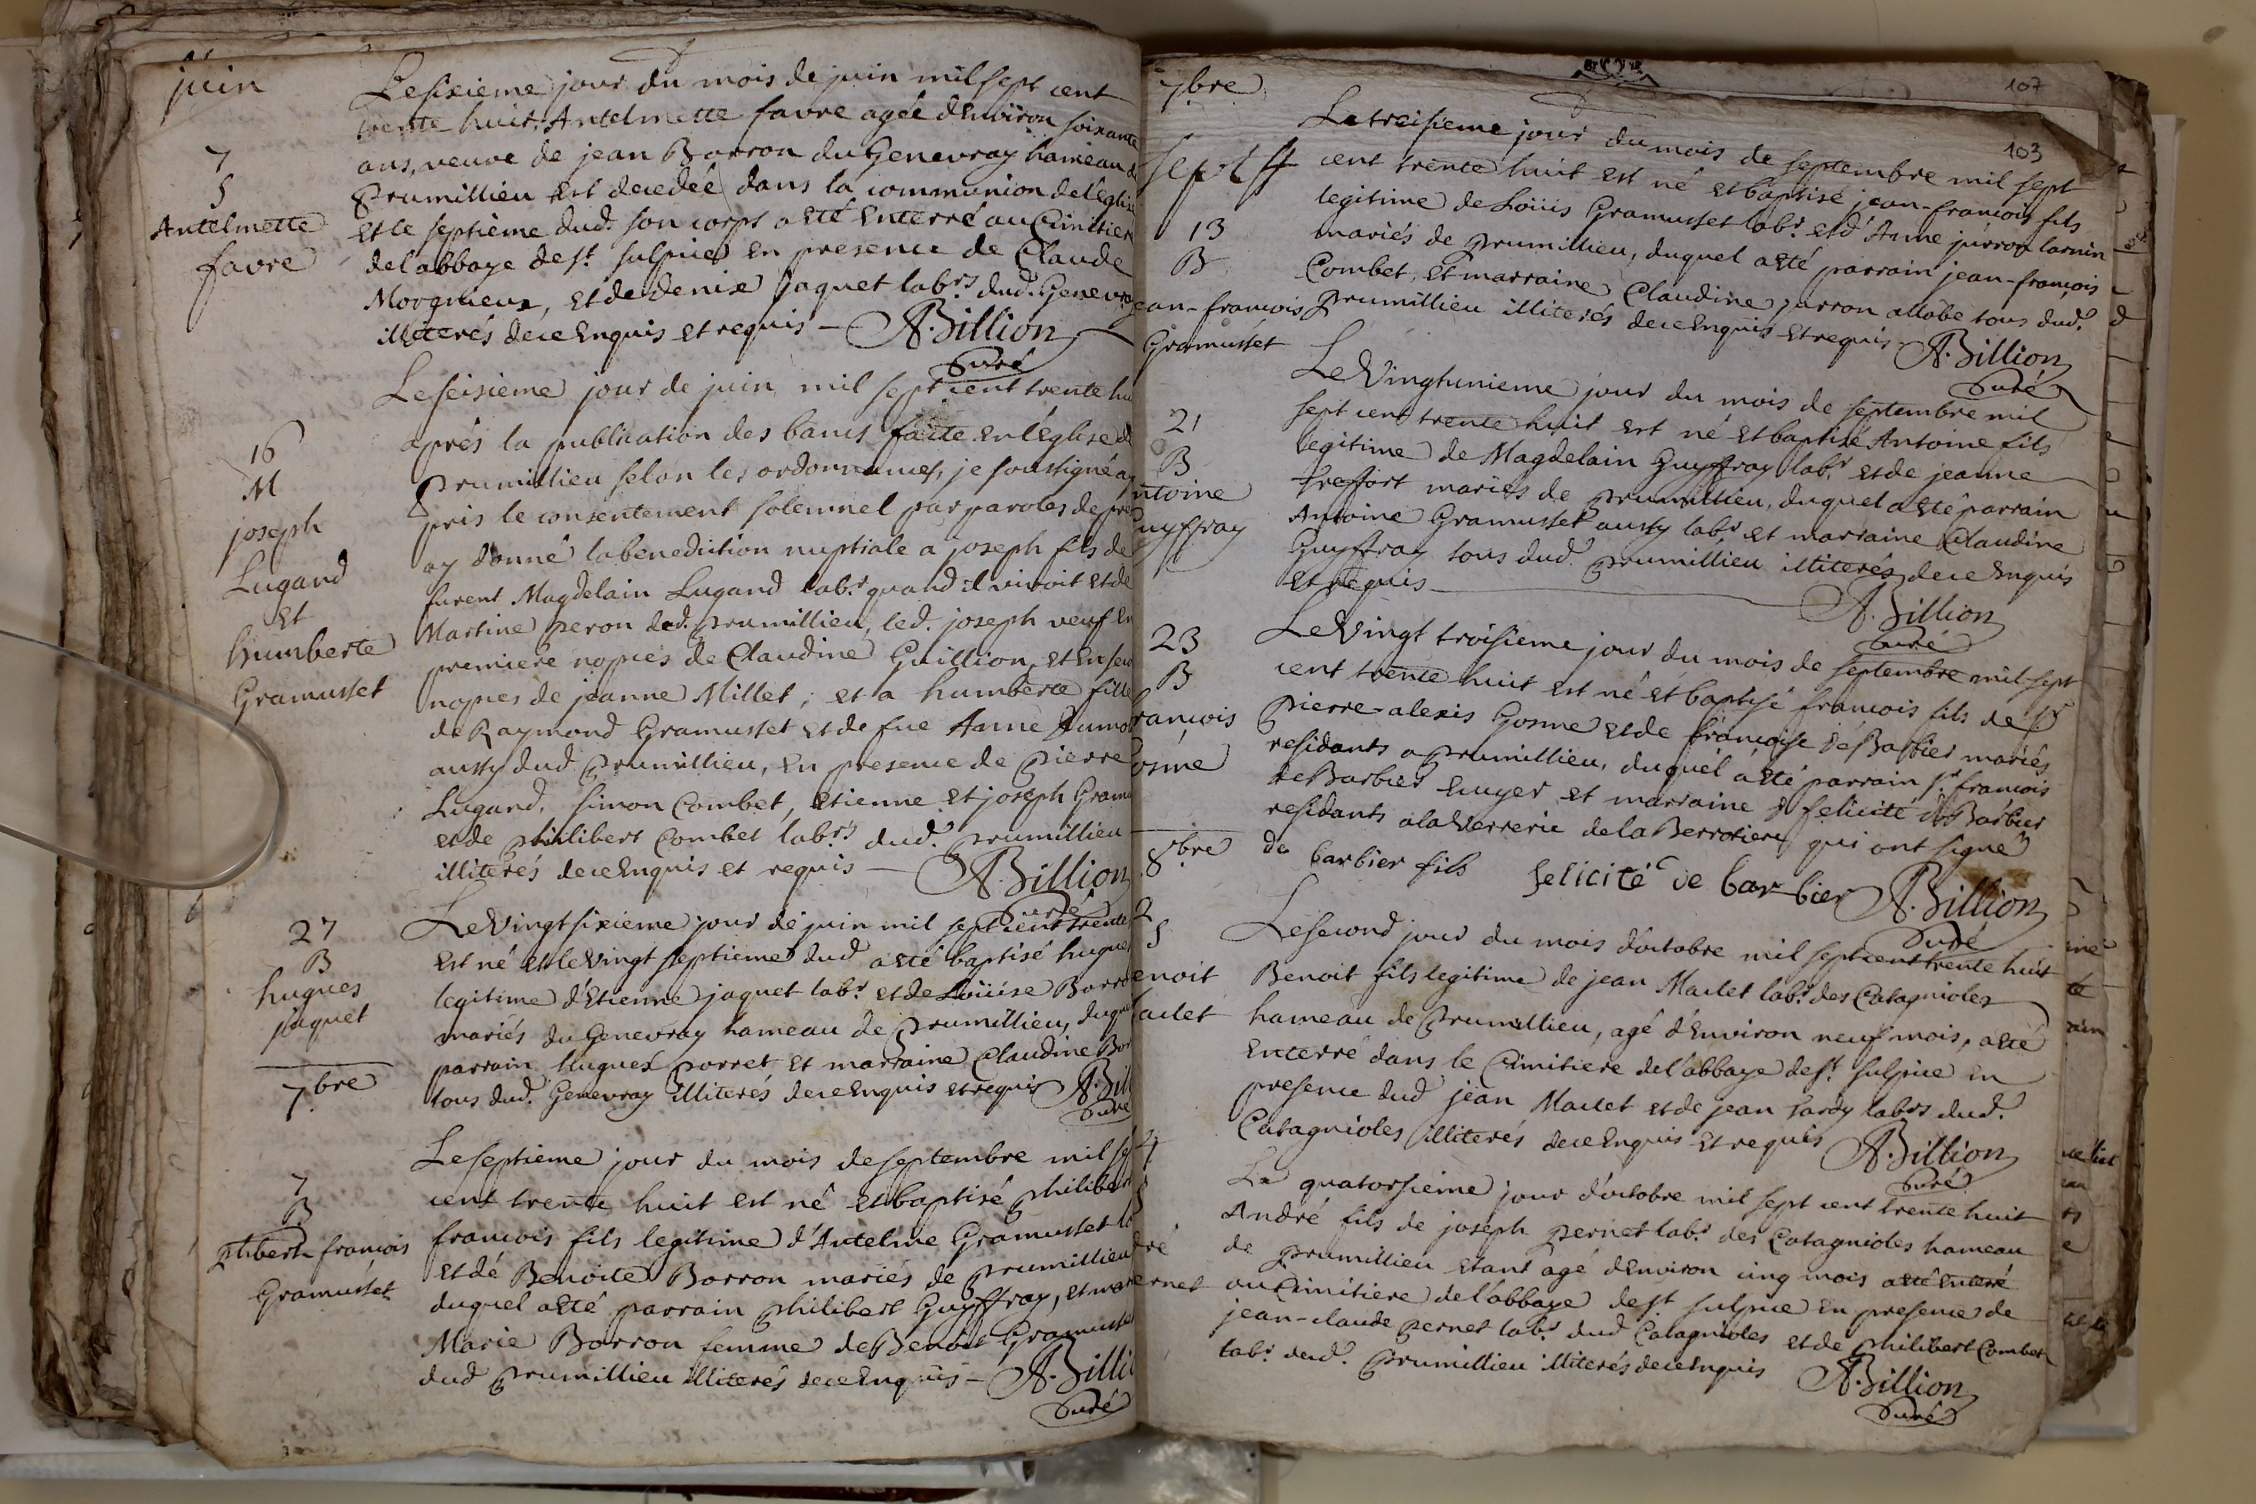 juin
Le sixieme jour du mois de juin mil sept cent
trente huit, Antelmette favre agée d'Environ soixante
ans, veuve de jean Borron du Genevray hameau d
Prumillieu est decedée dans la communion de l'eglis
7
S
Antelmette
favre
Et le septième dud. son corps a Eté Enterré au Cimitier
de l'abbaye de st. sulpice En presence de Claude
Morgnieux, et de denise jaquet labrs. dud. Genevra
illiterés de ce Enquis et requis — A. Billion
Curé
Le seisieme jour de juin mil sept cent trente hu
après la publication des bancs faite en l'Eglise d
Prumillieu selon les ordonnances, je soussigné a
pris le consentement solemnel par paroles de pre
ay donné la benediction nuptiale a joseph fils de
furent Magdelain Lugand labr. quand il vivoit et de
Martine peron dud. prumillieu, led. joseph veuf En
premiere nopces de Claudine Guillion, et En sec
nopces de jeanne Millet; et a humberte fille
de Raymond Gramusset et de fue Anne
aussy dud Prumillieu, En presence de Pierre
Lugand, simon Combet, etienne et joseph Gramu
et de philibert Combet labrs. dud. Prumillieu
illiterés de ce Enquis et requis — A. Billion
Curé
16
M
joseph
Lugand
Et
humberte
Gramusset
Le Vingt sixieme jour de juin mil sept cent trente
Est né et le Vingt septieme dud a eté baptisé hugues
legitime d'Etienne jaquet labr. et de Loüise Borro
mariés du Genevray hameau de Prumillieu, duque
parrain hugues porret et marraine Claudine Bor
tous dud. Genevray illiterés de ce Enquis et requis A. Bill
Curé
27
B
hugues
jaquet
7bre
Le septieme jour du mois de septembre mil se
cent trente huit est né et baptisé philiber
francois fils legitime d'Antelme Gramusset l
et de Benoite Borron mariés de Prumillieu
duquel a eté parrain philibert Guyffray, et mar
Marie Borron femme de Benoit Gramusse
dud Prumillieu illiterés de ce Enquis — A. Billi
Curé
7
B
Philibert-francois
Gramusset
7bre
107
103
sept
Le treisieme jour du mois de septembre mil sept
cent trente huit est né et baptisé jean-francois fils
legitime de Loüis Gramusset labr. et d'Anne jurron
mariés de Prumillieu, duquel a eté parrain jean-francois
Combet, et marraine Claudine jurron tous dud.
Prumillieu illiterés de ce Enquis et requis A. Billion
Curé
13
B
ean-francois
Gramusset
Le Vingtunieme jour du mois de septembre mil
sept cent trente huit est né et baptisé Antoine fils
legitime de Magdelain Guyffray labr. et de jeanne
treffort mariés de Prumillieu, duquel a eté parrain
Antoine Gramusset aussy labr. et marraine Claudine
Guyffray tous dud. Prumillieu illiterés de ce Enquis
et requis — A. Billion
Curé
21
B
ntoine
uyffray
Le Vingt troisieme jour du mois de septembre mil sept
cent trente huit est né et baptisé francois fils de sr
Pierre-alexis Gosme et de francoise de Barbier mariés
residants a Prumillieu, duquel a eté parrain sr. francois
de Barbier Ecuyer et marraine felicité de Barbier
residants a la Verrerie de la Berrotiere qui ont signé
de barbier fils felicité de barbier A. Billion
Curé
23
B
rancois
osme
8bre
Le second jour du mois d'octobre mil sept cent trente huit
Benoit fils legitime de jean Maclet labr. des Catagnioles
hameau de Prumillieu, agé d'Environ neuf mois, a eté
Enterré dans le Cimitiere de l'abbaye de st. sulpice En
presence dud jean Maclet et de jean tardy labrs dud.
Catagnioles illiterés de ce Enquis et requis A. Billion
Curé
2
S
enoit
aclet
Le quatorsieme jour d'octobre mil sept cent trente huit
André fils de joseph pernet labr. des Catagnioles hameau
de Prumillieu etant agé d'Environ cinq mois a eté Enterré
au Cimitiere de l'abbaye de st sulpice En presence de
jean-claude pernet labr. dud Catagnioles et de philibert Combet
labr. dud. Prumillieu illiterés de ce Enquis A. Billion
Curé
dre
ernet